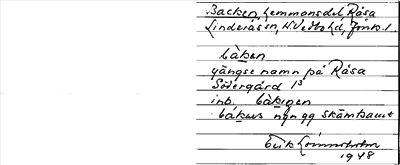 Backen, hemmansdel, Råsa
Linderås sn, N. Vedbo hd, Jönk. l.
bàken
gängse namn på Råsa
Södergård 1³
inb. bàkigen
bákus ngn gg skämtsamt
Erik
1948